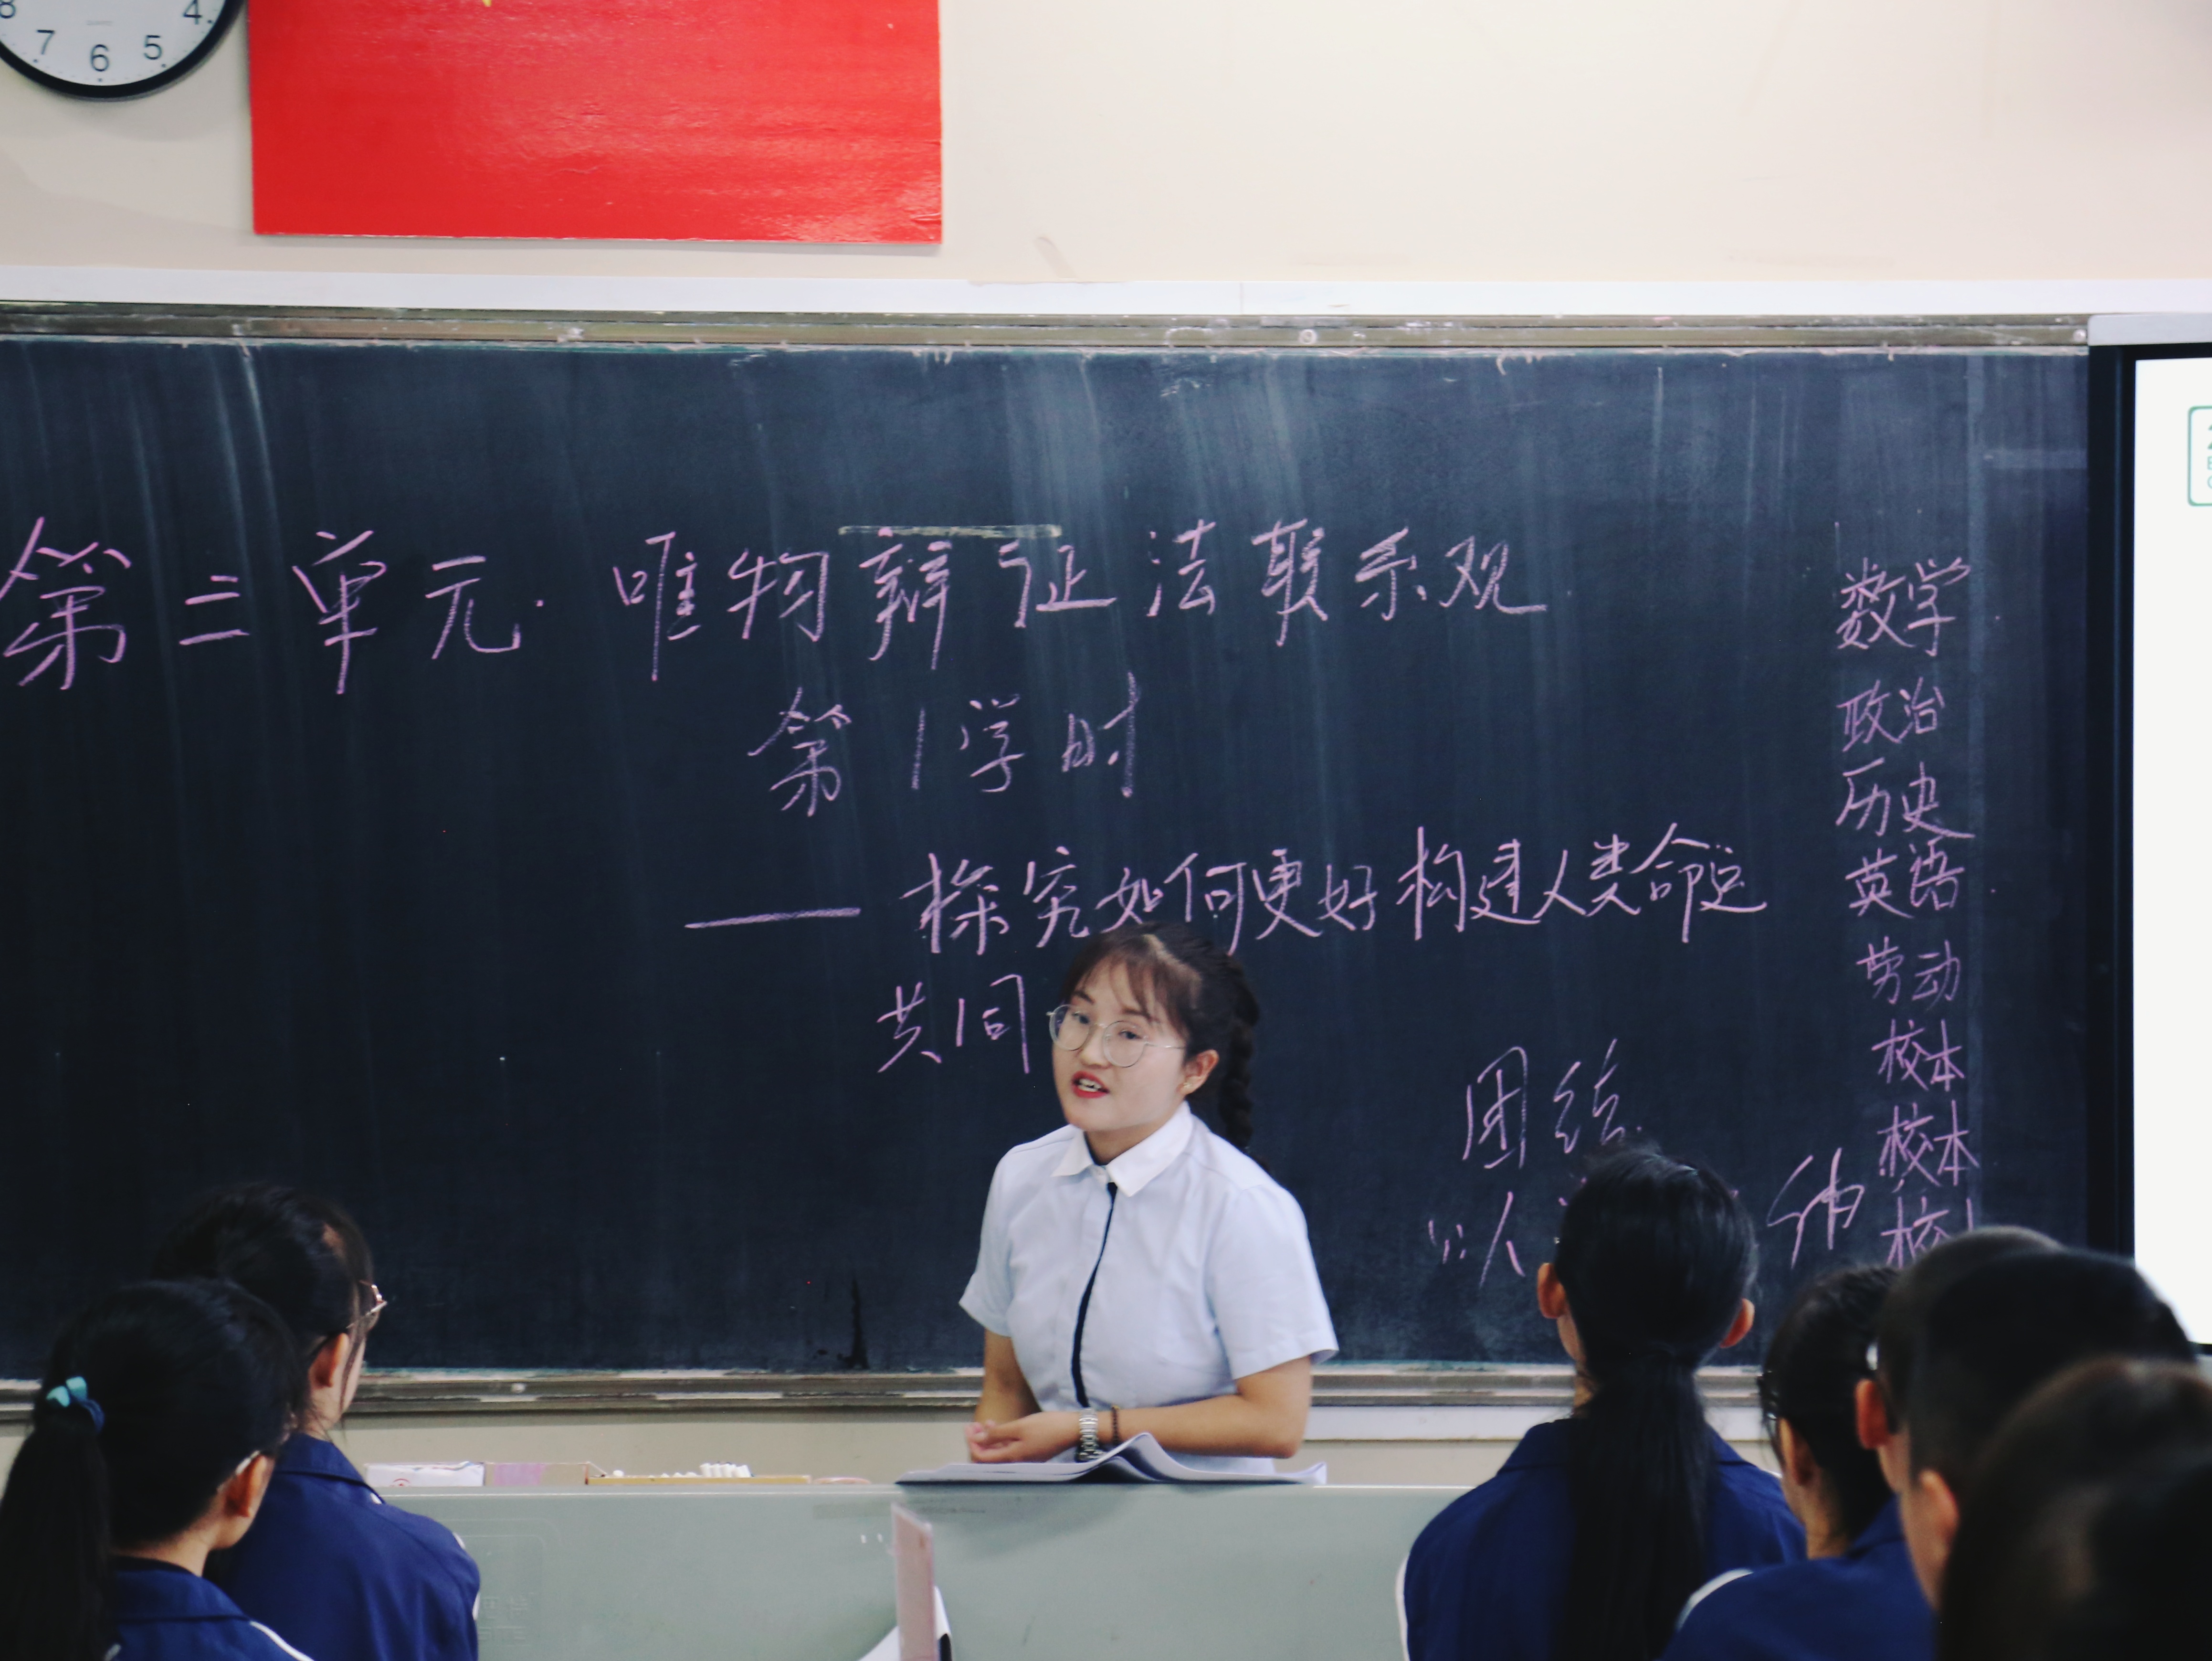 8 7 6 5 4
第三单元·唯物辩证法联系观
第1学时
——探究如何更好构建人类命运
共同
团结
以
数学
政治
历史
英语
劳动
校本
校本
校